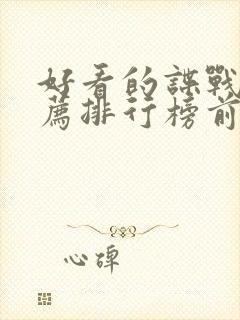 好看的諜戰
薦排行榜前
心碑